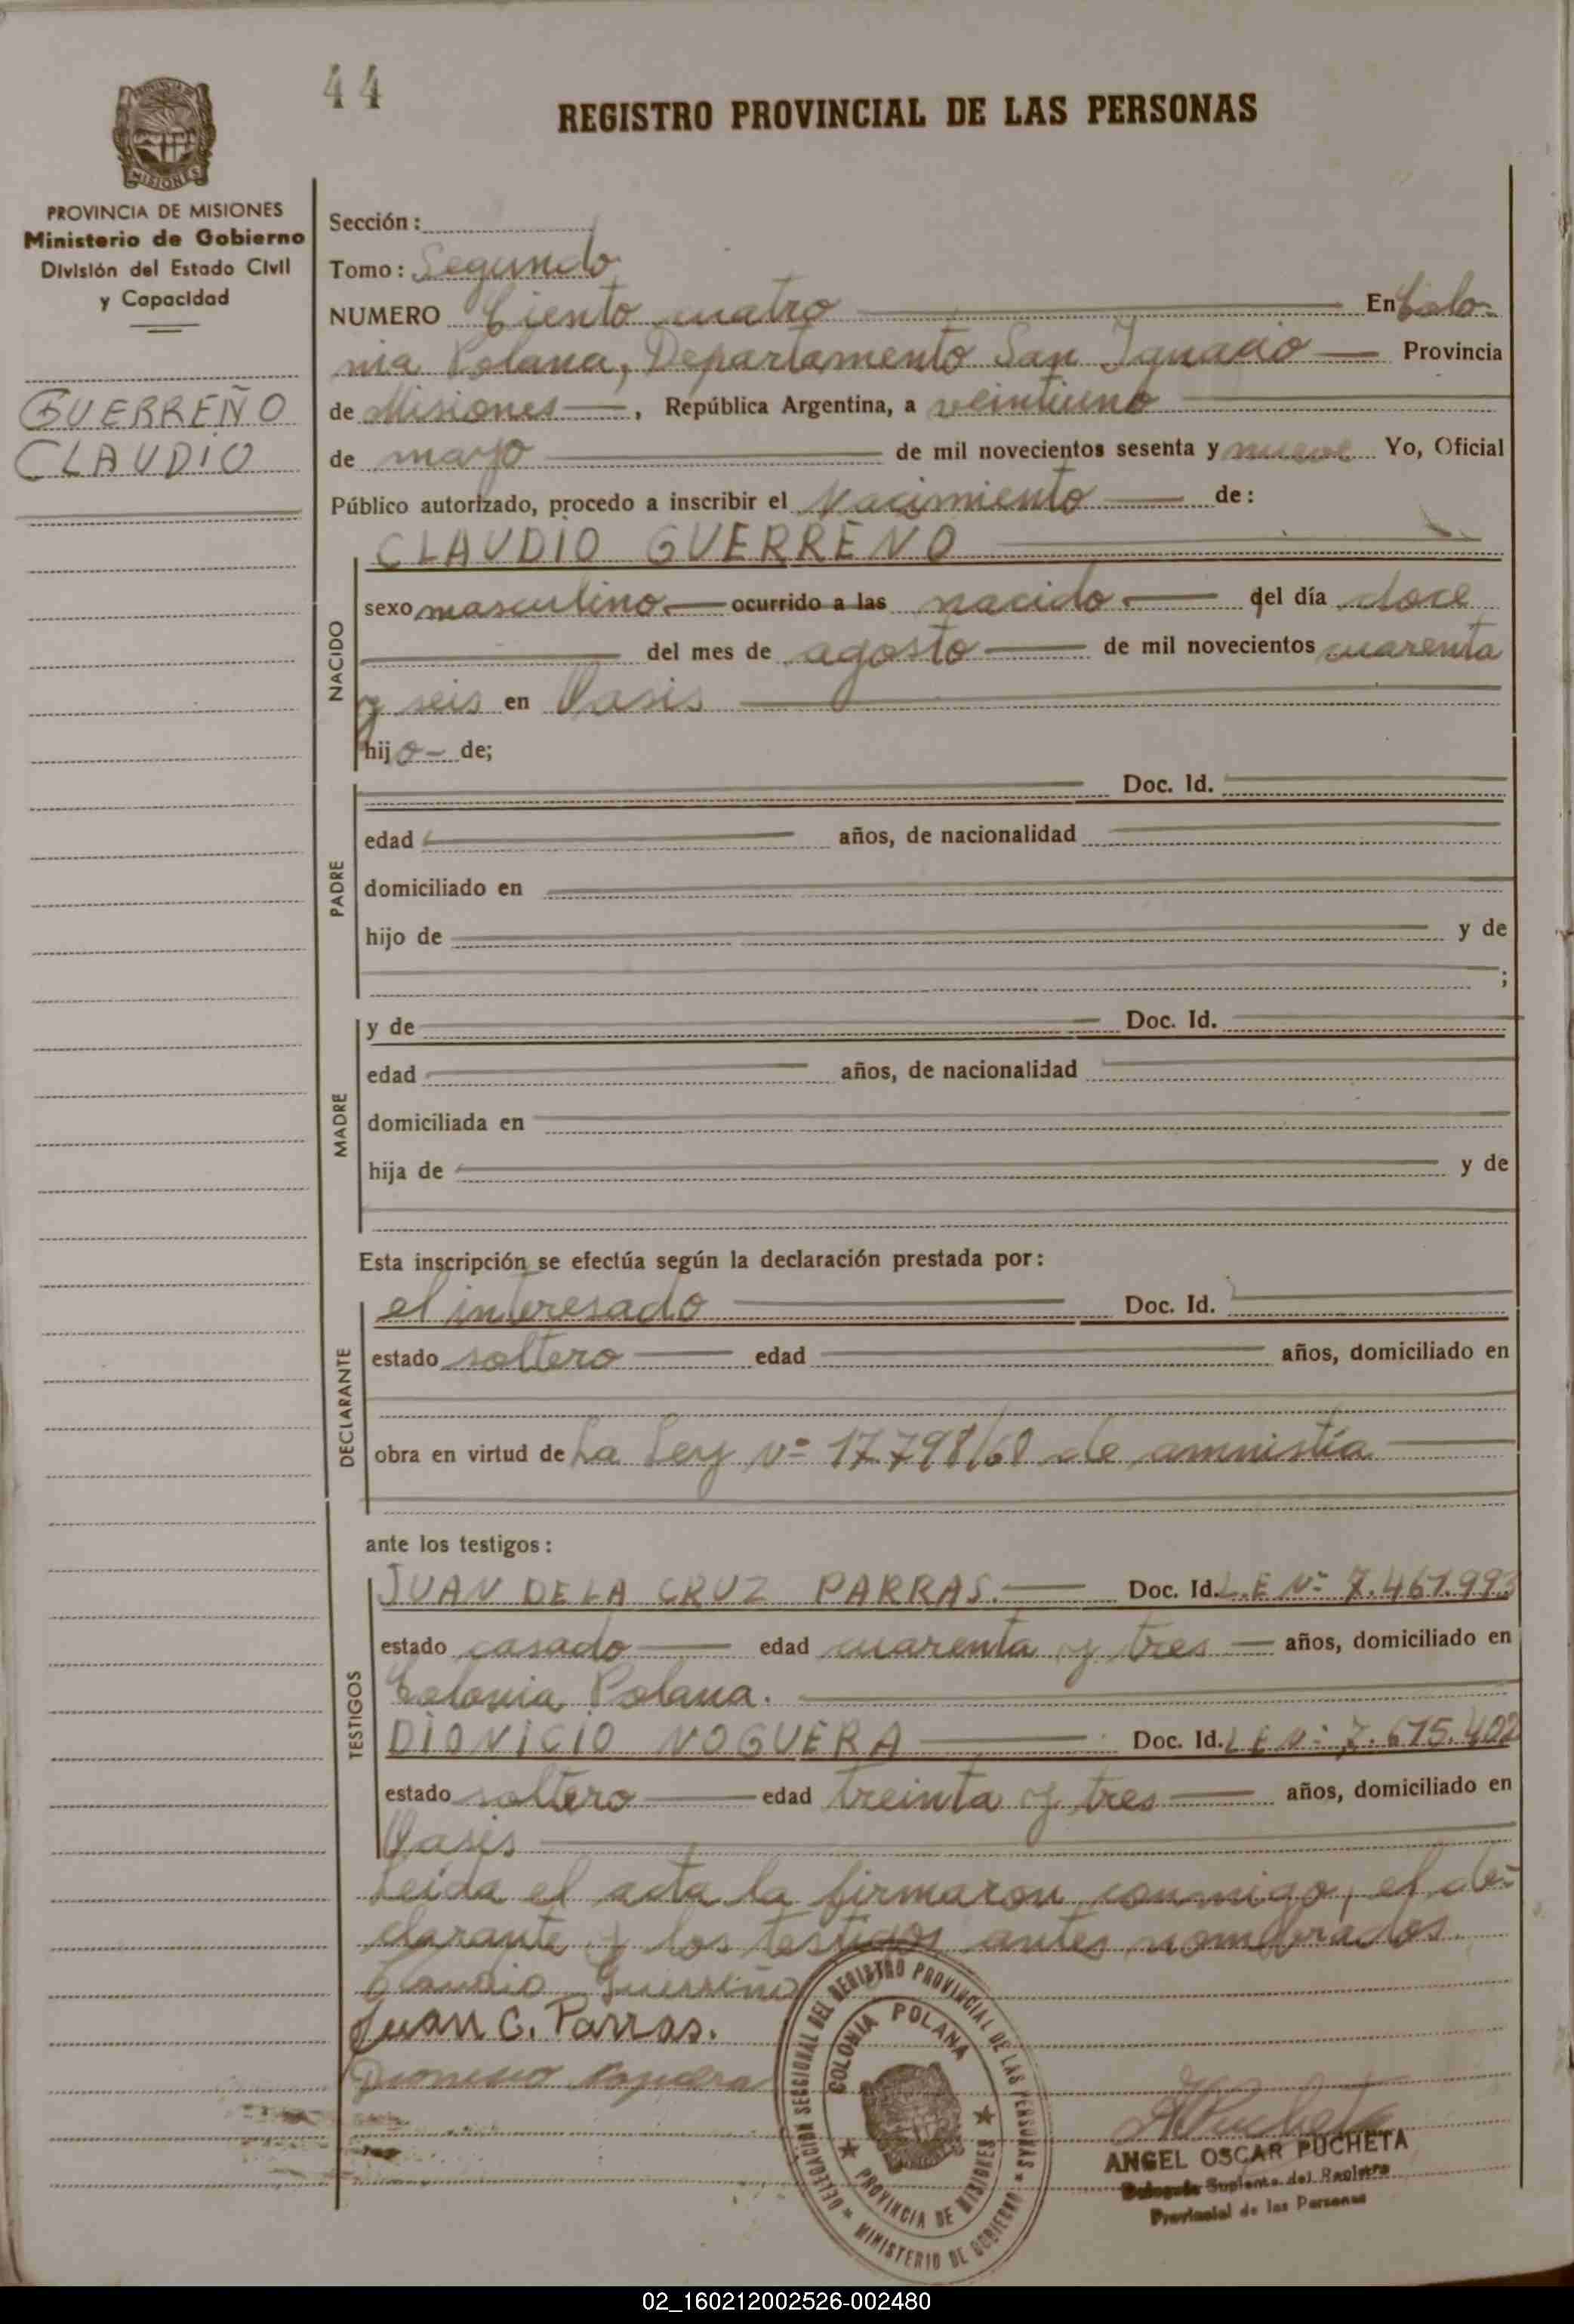 44
REGISTRO PROVINCIAL DE LAS PERSONAS
MISIONES
PROVINCIA DE MISIONES
Ministerio de Gobierno
División del Estado Civil
y Capacidad
GUERREÑO
CLAUDIO
Sección:
Tomo: Segundo
NUMERO Ciento cuatro En Colo-
nia Polana, Departamento San Ignacio Provincia
de Misiones, República Argentina, a veintiuno
de mayo de mil novecientos sesenta y nueve Yo, Oficial
Público autorizado, procedo a inscribir el Nacimiento de:
CLAUDIO GUERREÑO
NACIDO
sexo masculino ocurrido a las nacido del día doce
del mes de agosto de mil novecientos cuarenta
y seis en Oasis
hijo de;
PADRE
Doc. Id.
edad años, de nacionalidad
domiciliado en
hijo de y de
;
MADRE
y de Doc. Id.
edad años, de nacionalidad
domiciliada en
hija de y de
Esta inscripción se efectúa según la declaración prestada por:
DECLARANTE
el interesado Doc. Id.
estado soltero edad años, domiciliado en
obra en virtud de La Ley Nº 17.798/68 de amnistía
ante los testigos:
TESTIGOS
JUAN DE LA CRUZ PARRAS. Doc. Id. L.E Nº 7.467.993
estado casado edad cuarenta y tres años, domiciliado en
Colonia Polana.
DIONICIO NOGUERA Doc. Id. L E Nº 7.675.402
estado soltero edad treinta y tres años, domiciliado en
Oasis
Leida el acta la firmaron conmigo, el de-
clarante y los testigos antes nombrados.
Claudio Guerreño
Juan C. Parras.
Dionicio Noguera
DELEGACION SECCIONAL DEL REGISTRO PROVINCIAL DE LAS PERSONAS
MINISTERIO DE GOBIERNO
COLONIA POLANA
PROVINCIA DE MISIONES
A Pucheta
ANGEL OSCAR PUCHETA
Delegado Suplente del Registro
Provincial de las Personas
02_160212002526-002480